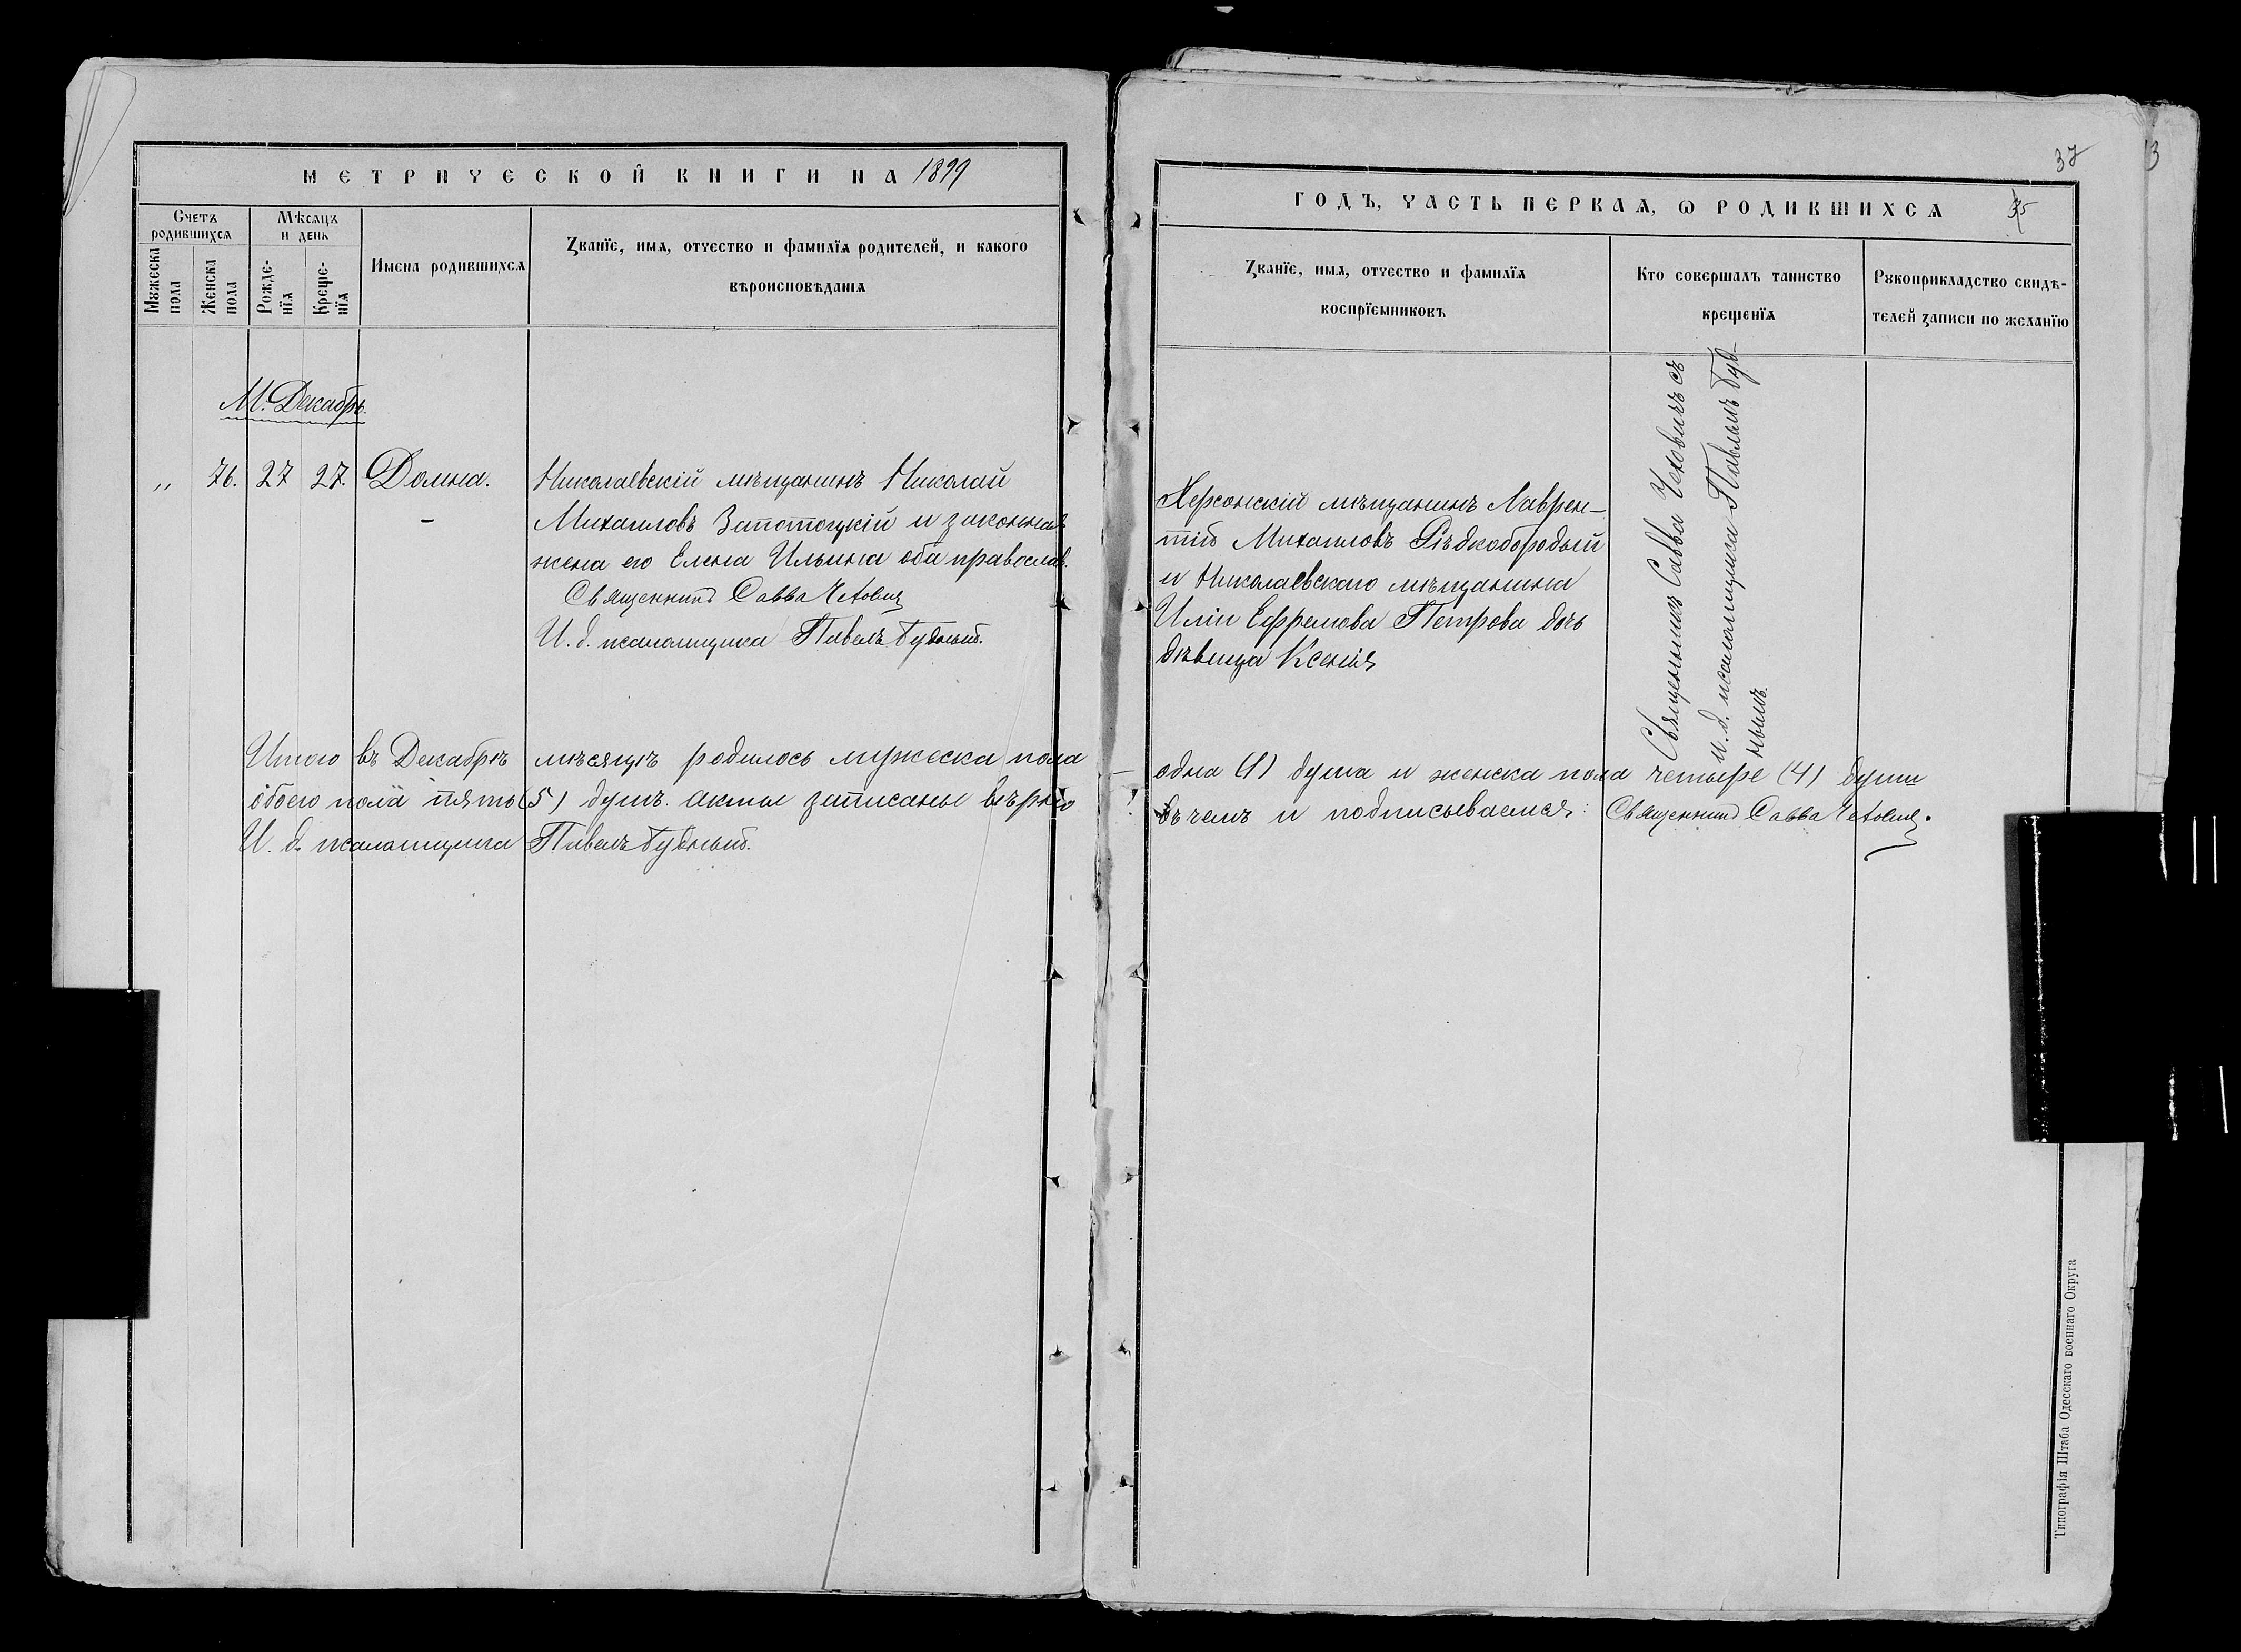 МЕТРИЧЕСКОЙ КНИГИ НА 1899
Счетъ родившихся
Мѣсяцъ и день
Имена родившихся
Званїе, имя, отчество и фамилїя родителей, и какого
вѣроисповѣданія
Мужеска пола
Женска пола
Рожде-
нїя
Креще-
нїя
М. Декабрь.
„ 76. 27 27. Домна.
Николаевскій мѣщанинъ Николай
Михаиловъ Запотоцкій и законная
жена его Елена Ильина оба православ.
Священникъ Савва Чехович
И. д. псаломщика Павелъ Будный.
Итого въ Декабрѣ мѣсяцѣ родилось мужеска пола
обоего пола пять (5) душъ. Акты записаны вѣрно
И. д. псаломщика Павелъ Будный.
37
ГОДЪ, ЧАСТЬ ПЕРВАЯ, Ѡ РОДИВШИХСЯ
35
Званїе, имя, отчество и фамилїя
воспрїемниковъ
Кто совершалъ таинство
крещенїя
Рукоприкладство свидѣ-
телей записи по желанїю
Херсонскій мѣщанинъ Лаврен-
тій Михаиловъ Рѣдкобородый
и Николаевскаго мѣщанина
Иліи Ефремова Петрова дочь
дѣвица Ксенія
Священникъ Савва Чеховичъ съ
и. д. псаломщика Павломъ Буд-
нымъ.
одна (1) душа и женска пола четыре (4) души
въ чемъ и подписываемся: Священникъ Савва Чехович.
Типографія Штаба Одесскаго военнаго Округа
3